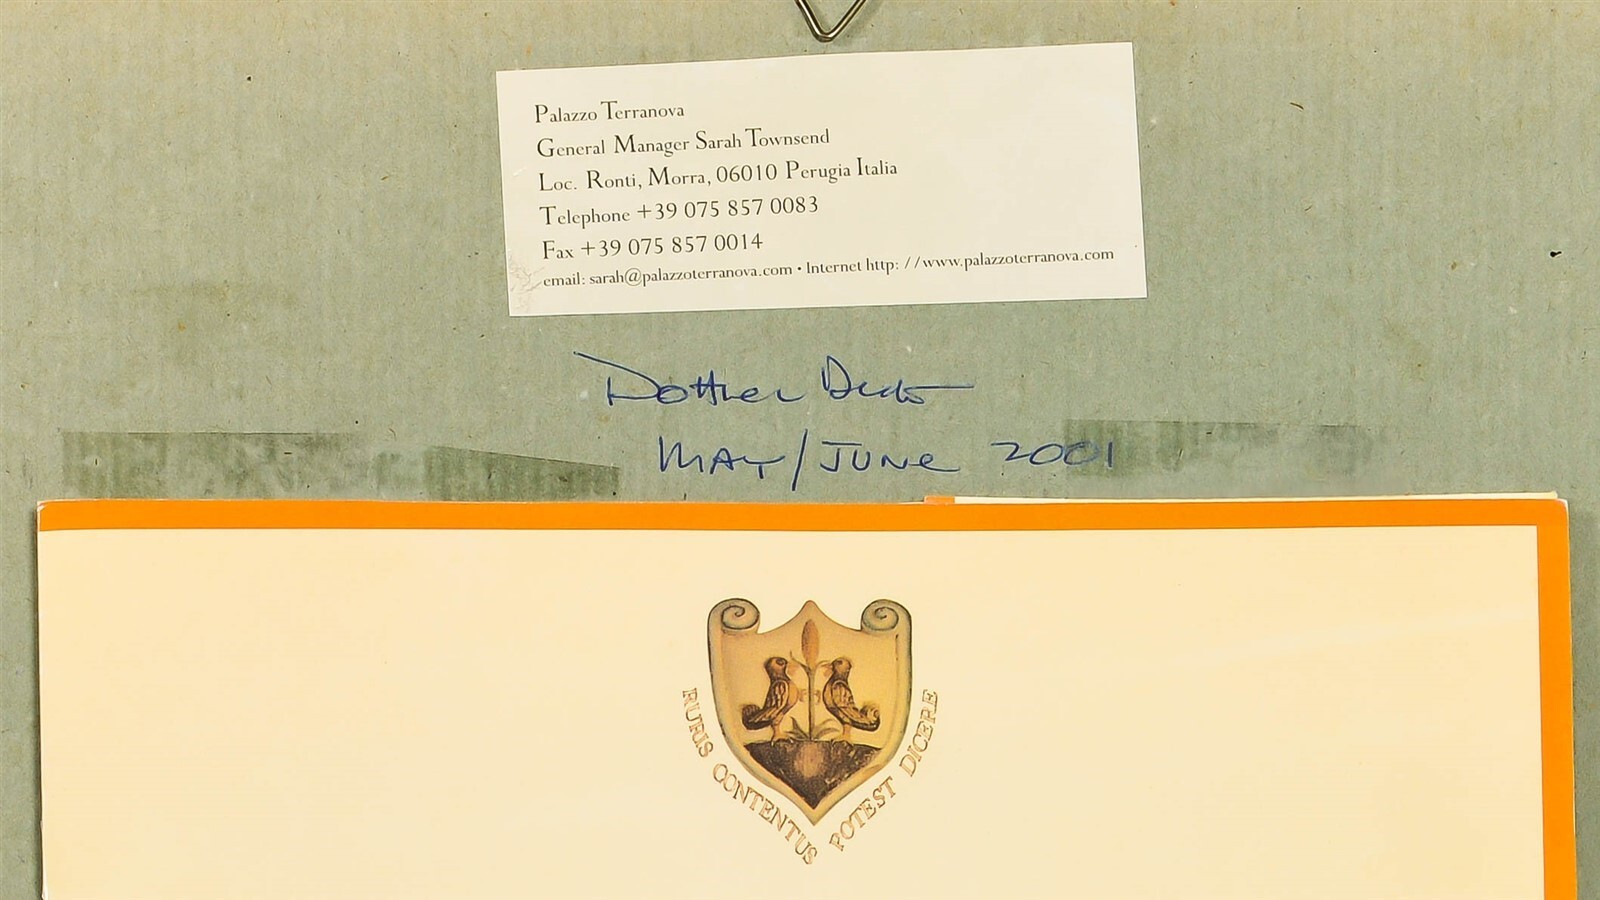 Palazzo Terranova
General Manager Sarah Townsend
Loc. Ronti, Morra, 06010 Perugia Italia
Telephone +39 075 857 0083
Fax +39 075 857 0014
email: sarah@palazzoterranova.com • Internet http: //www.palazzoterranova.com
MAY/JUNE 2001
RURIS CONTENTUS POTEST DICERE